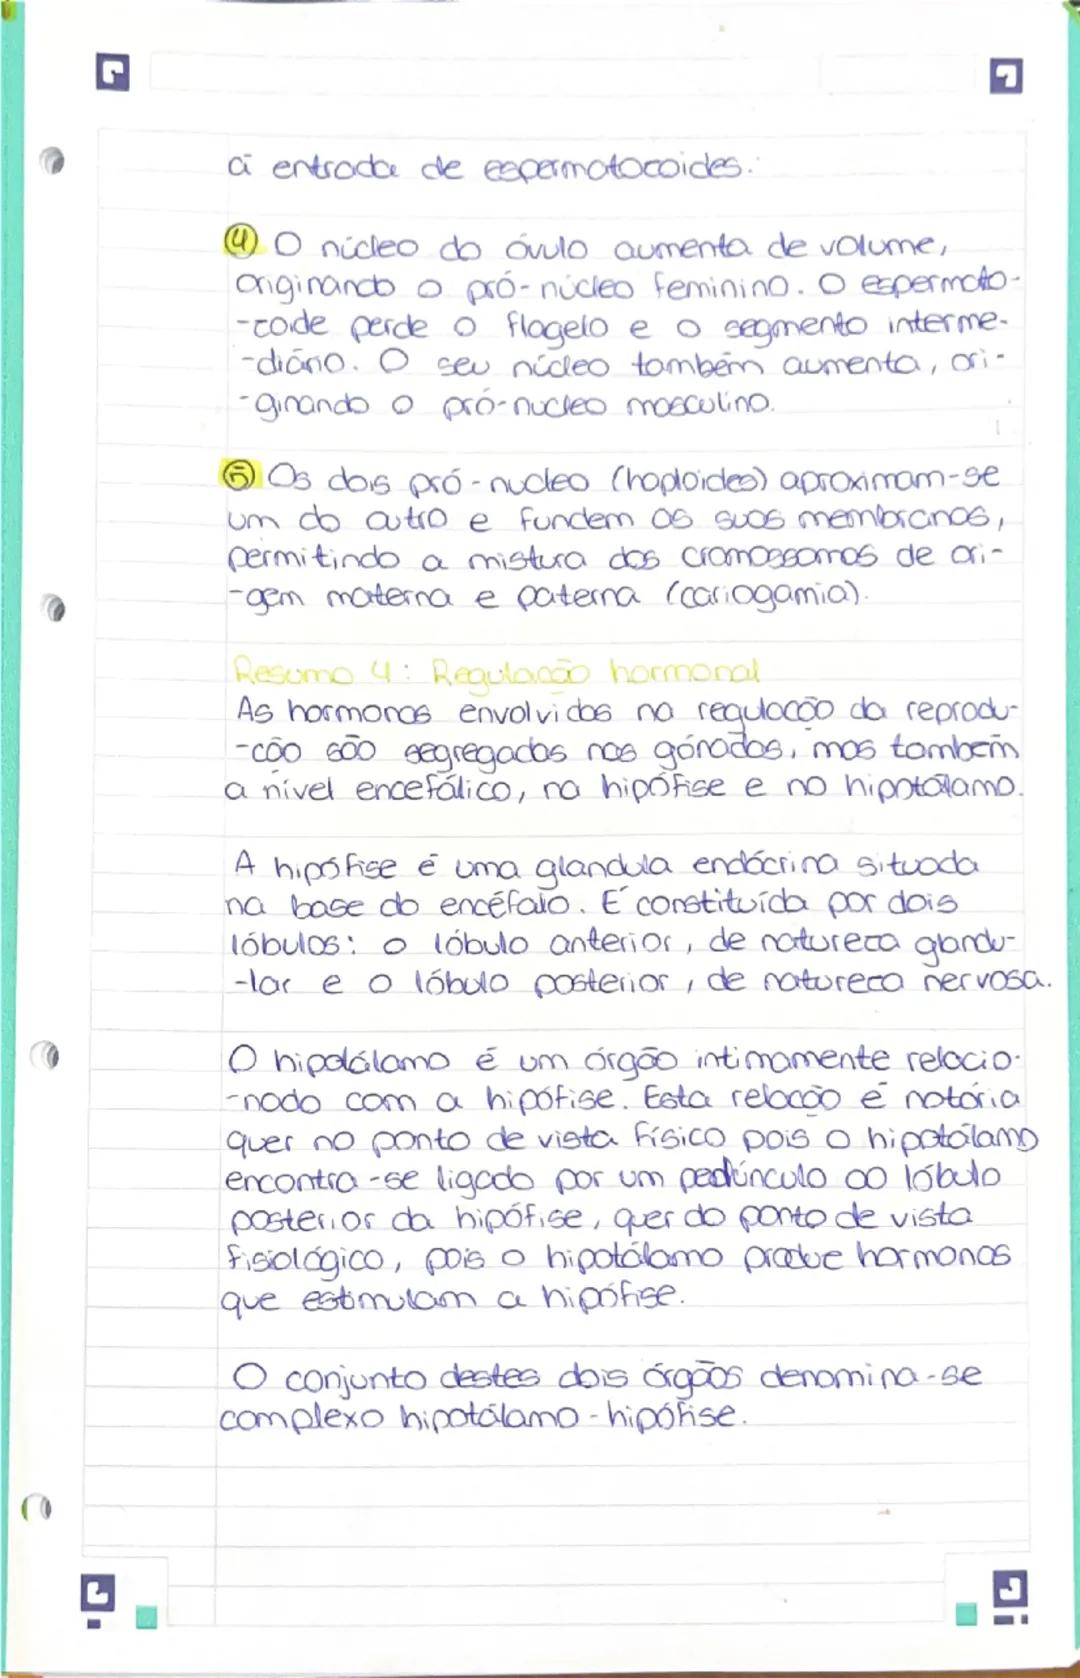 à entrada de espermatozoides.
④ O núcleo do óvulo aumenta de volume,
originando o pró-núcleo feminino. O espermato-
-zoide perde o flagelo e o segmento interme-
-diário. O seu núcleo também aumenta, ori-
-ginando o pró-nucleo masculino.
⑤ Os dois pró-nucleo (haploides) aproximam-se
um do outro e fundem as suas membranas,
permitindo a mistura dos cromossomas de ori-
-gem materna e paterna (cariogamia).
Resumo 4: Regulação hormonal
As hormonas envolvidas na regulação da reprodu-
-ção são segregadas nas gónadas, mas também
a nível encefálico, na hipófise e no hipotálamo.
A hipófise é uma glandula endócrina situada
na base do encéfalo. É constituída por dois
lóbulos: o lóbulo anterior, de natureza glandu-
-lar e o lóbulo posterior, de natureza nervosa.
O hipotálamo é um órgão intimamente relacio-
-nado com a hipófise. Esta relação é notória
quer no ponto de vista físico pois o hipotálamo
encontra-se ligado por um pedúnculo ao lóbulo
posterior da hipófise, quer do ponto de vista
fisiológico, pois o hipotálamo produz hormonas
que estimulam a hipófise.
O conjunto destes dois órgãos denomina-se
complexo hipotálamo-hipófise.